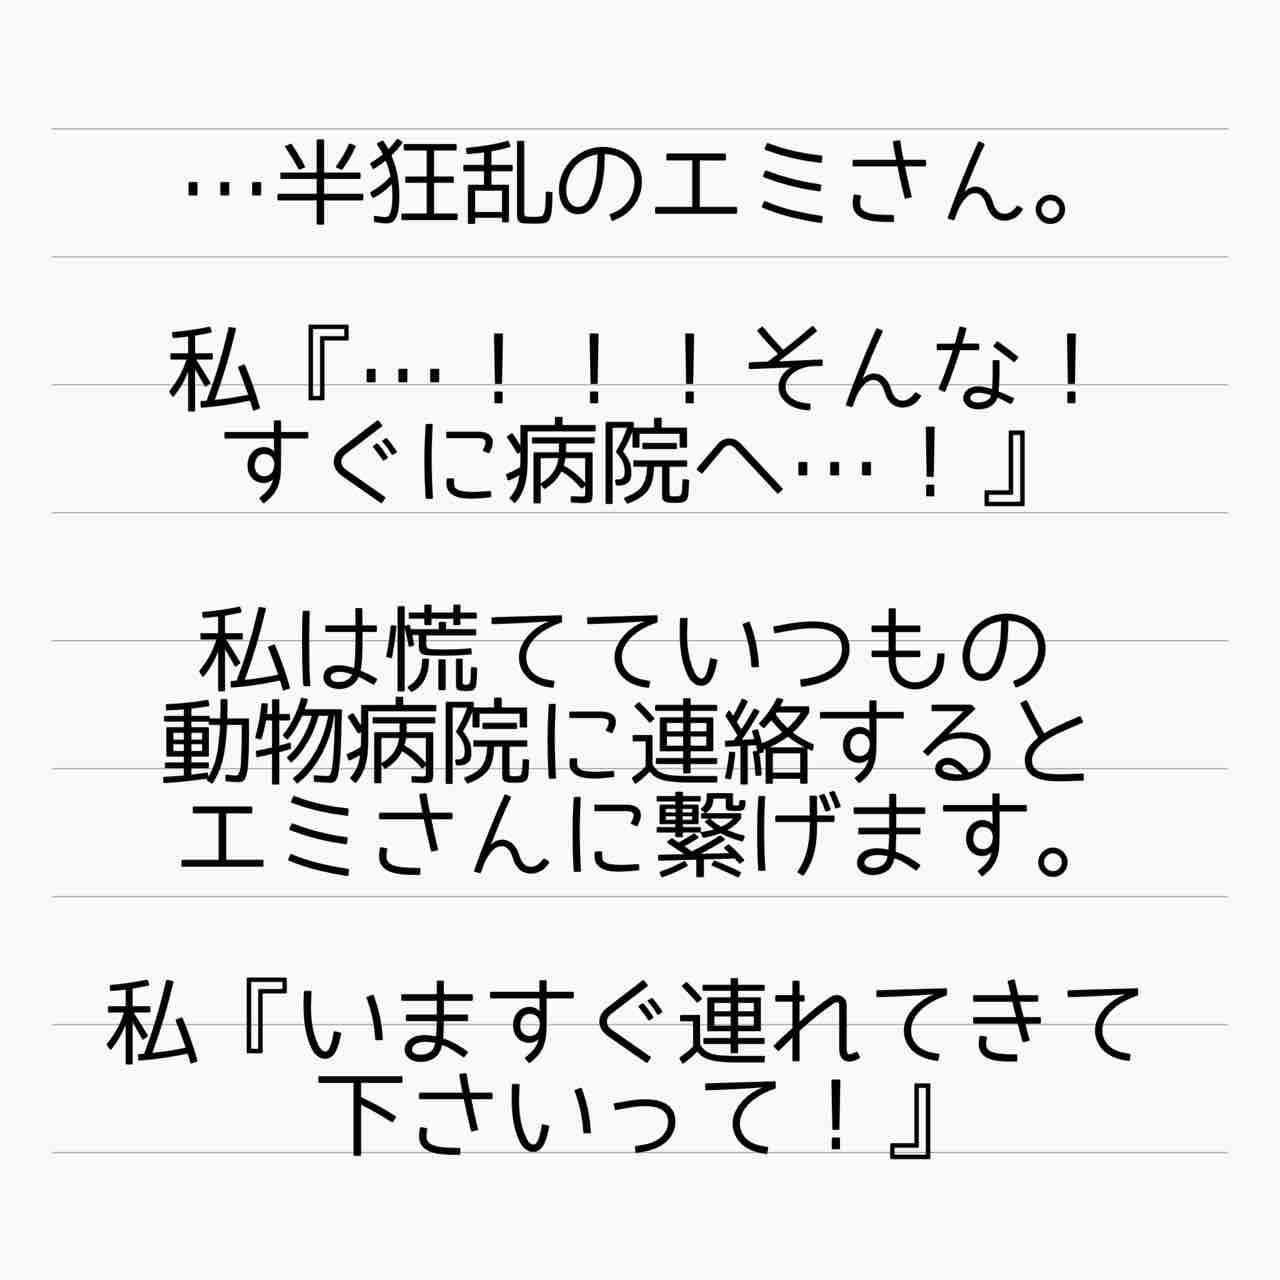 …半狂乱のエミさん。
私『…！！！そんな！
すぐに病院へ…！』
私は慌てていつもの
動物病院に連絡すると
エミさんに繋げます。
私『いますぐ連れてきて
下さいって！』